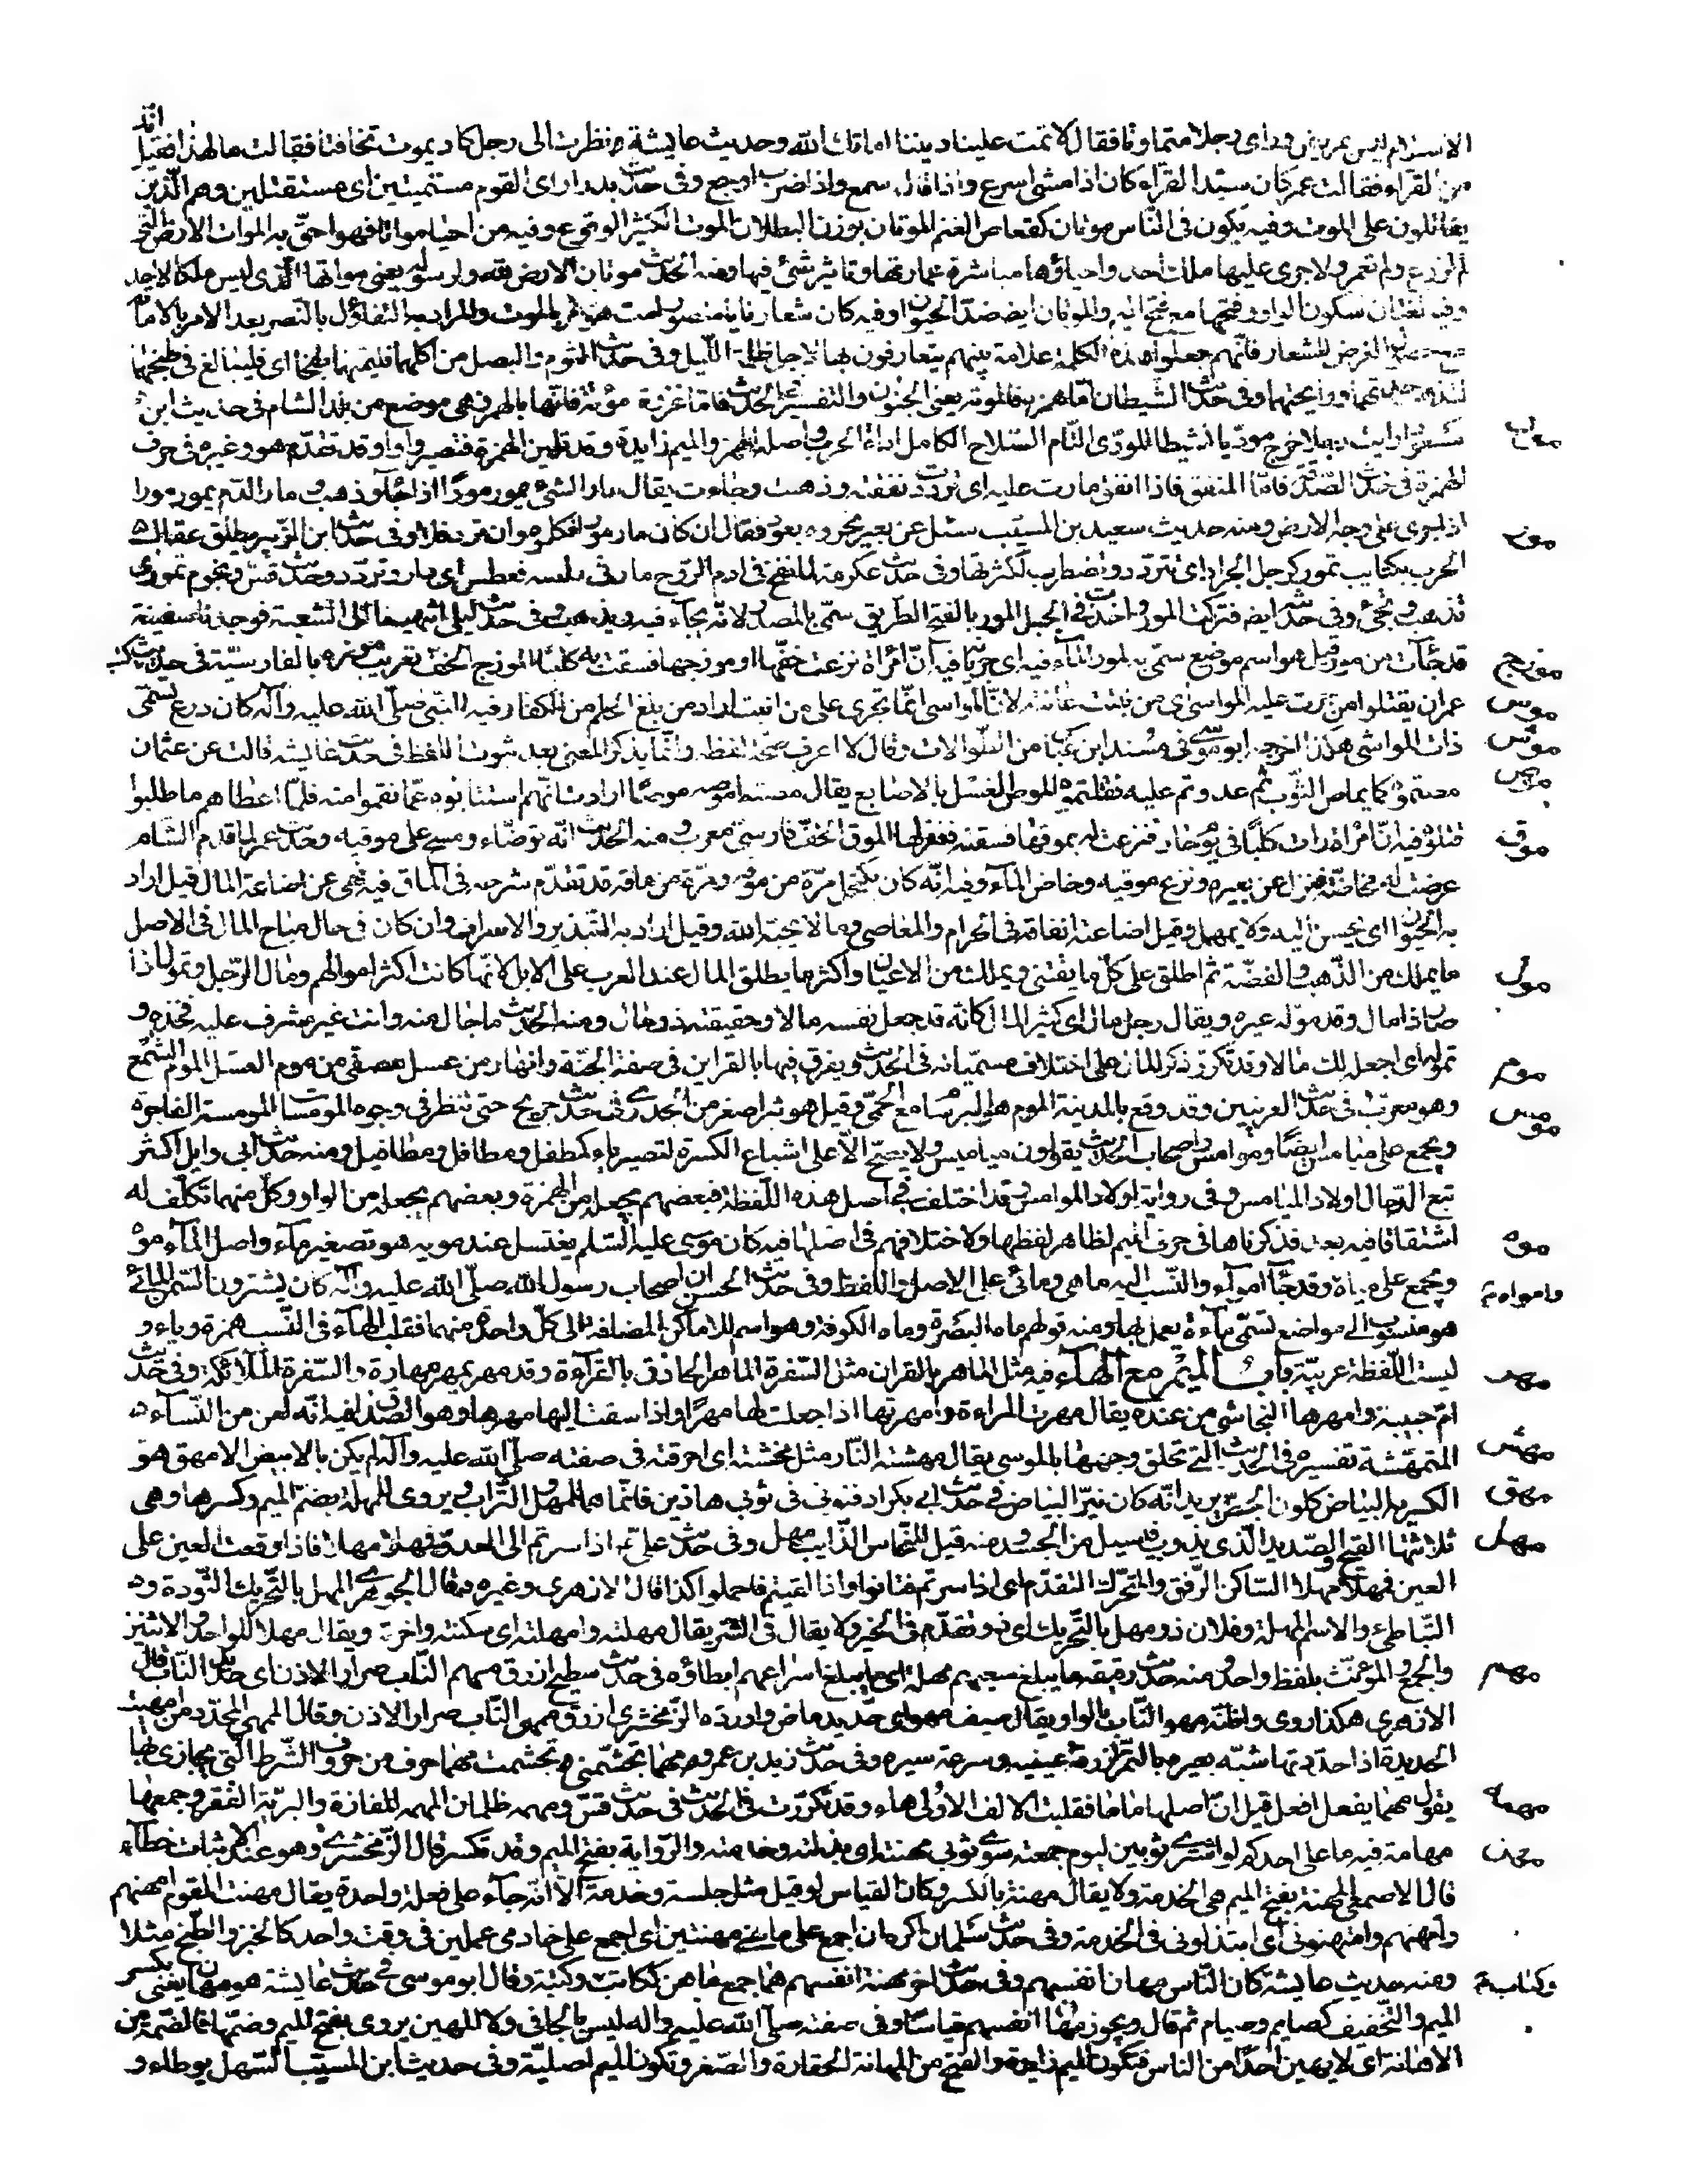 الاسلام ليس بمريض وراى رجلا متماوتا فقال لا تمت علينا ديننا اماتك الله وحديث عايشة نظرت الى رجل كاد يموت تخافتا فقالت ما لهذا فقيل انه
من القراء فقالت عمر كان سيد القراء كان اذا مشى اسرع واذا قال سمع واذا ضرب اوجع وفى حديث بدر ارى القوم مستميتين اى مستقتلين وهم الذين
يقاتلون على الموت وفيه يكون فى الناس موتان كقعاص الغنم الموتان بوزن البطلان الموت الكثير الوقوع وفيه من احيا مواتا فهو احق به الموات الارض التى
لم تزرع ولم تعمر ولا جرى عليها ملك احد واحياؤها مباشرة عمارتها وتاثير شئ فيها ومنه الحديث موتان الارض لله ولرسوله يعنى مواتها الذى ليس ملكا لاحد
وفيه لغتان سكون الواو وفتحها مع فتح الميم والموتان ايضا ضد الحيوان وفيه كان شعارنا يا منصور امت هو امر بالموت والمراد به التفاؤل بالنصر بعد الامر بالاماتة
الغرض للشعار فانهم جعلوا هذه الكلمة علامة بينهم يتعارفون بها لاجل ظلمة الليل وفى حديث الثوم والبصل من اكلهما فليمتهما طبخا اى فليبالغ فى طبخهما
لتذهب حدتهما ورايحتهما وفى حديث الشيطان اما همزه فالموتة يعنى الجنون والتفسير فى الحديث فاما غزوة مؤتة فانها بالهمز وهى موضع من بلد الشام فى حديث ابن
مسعود ارايت رجلا خرج موديا نشيطا المودى التام السلاح الكامل اداة الحرب واصله الهمز والميم زايدة وقد تلين الهمزة فتصير واوا وقد تقدم هو وغيره فى حرف
الهمزة فى حديث الصدقة فاما المنفق فاذا انفق مارت عليه اى ترددت نفقته وذهبت وجاءت يقال مار الشئ يمور مورا اذا جاء وذهب ومار الدم يمور مورا
مور
اذا جرى على وجه الارض ومنه حديث سعيد بن المسيب سئل عن بعير نحروه بعود فقال ان كان مار مورا فكلوه وان ثرد فلا وفى حديث ابن الزبير يطلق عقال
الحرب بكتايب تمور كرجل الجراد اى تتردد وتضطرب لكثرتها وفى حديث عكرمة لما نفخ فى ادم الروح مار فى راسه فعطس اى دار وتردد وحديث قس ونجوم تمور اى
تذهب وتجئ وفى حديثه ايضا فتركت المور واخذت فى الجبل المور بالفتح الطريق سمى بالمصدر لانه يجاء فيه ويذهب وفى حديث ليلى انتهينا الى الشعيثة فوجدنا سفينة
موزج
قد جاءت من مور قيل هو اسم موضع سمى به لمور الماء فيه اى جريانه فيه ان امراة نزعت خفها او موزجها فسقت به كلبا الموزج الخف تعريب موزه بالفارسية فى حديث
موس
عمران يقتلوا من جرت عليه المواسى اى من نبتت عانته لان المواسى انما تجرى على من انبت اراد من بلغ الحلم من الكفار فيه النبى صلى الله عليه وآله كان درع تسمى
موش
ذات المواشى هكذا اخرجه ابو موسى فى مسند ابن عباس من الطوالات وقال لا اعرف صحة لفظه وانما يذكر المعنى بعد ثبوت اللفظ فى حديث عايشه قالت عن عثمان
موص
مصتموه كما يماص الثوب ثم عدوتم عليه فقتلتموه الموص الغسل بالاصابع يقال مصته اموصه موصا ارادت انهم استتابوه عما نقموا منه فلما اعطاهم ما طلبوا
موق
قتلوه فيه ان امراة رات كلبا فى يوم حار فنزعت له بموقها فسقته فغفر لها الموق الخف فارسى معرب ومنه الحديث انه توضاء ومسح على موقيه وحديث عمر لما قدم الشام
عرضت له مخاضة فنزل عن بعيره ونزع موقيه وخاض الماء وفيه انه كان يكتحل مرة من موقه ومرة من ماقه قد تقدم شرحه فى الماق فيه نهى عن اضاعة المال قيل اراد
به الحيوان اى يحسن اليه ولا يهمل وقيل اضاعته انفاقه فى الحرام والمعاصى وما لا يحبه الله وقيل اراد به التبذير والاسراف وان كان فى حال مباح المال فى الاصل
مول
ما يملك من الذهب والفضة ثم اطلق على كل ما يقتنى ويملك من الاعيان واكثر ما يطلق المال عند العرب على الابل لانها كانت اكثر اموالهم ومال الرجل وتمول اذا
صار ذا مال وقد موله غيره ويقال رجل مال اى كثير المال كانه قد جعل نفسه مالا وحقيقته ذو مال ومنه الحديث ما جاءك منه وانت غير مشرف عليه فخذه و
موم
تموله اى اجعله لك مالا وقد تكرر ذكر المال على اختلاف مسمياته فى الحديث ويفرق فيها بالقراين فى صفة الجنة وانهار من عسل مصفى من موم العسل الموم الشمع
مومس
وهو معرب فى حديث العرنيين وقد وقع بالمدينة الموم هو البرسام مع الحمى وقيل هو بثر اصغر من الجدرى فى حديث جريج حتى تنظر فى وجوه المومسات المومسة الفاجرة
ويجمع على ميامس ايضا ومواميس واصحاب الحديث يقولون مياميس ولا يصح الا على اشباع الكسرة لتصير ياء كمطفل ومطافل ومطافيل ومنه حديث ابى وايل اكثر
تبع الدجال اولاد الميامس وفى رواية اولاد المواميس وقد اختلف فى اصل هذه اللفظة فبعضهم يجعله من الهمزة وبعضهم يجعله من الواو وكل منهما تكلف له
موه
اشتقاقا فيه بعد قد ذكرناها فى حرف الميم لظاهر لفظها ولاختلافهم فى اصلها فيه كان موسى عليه السلم يغتسل عند مويه هو تصغير ماء واصل الماء موه
ويجمع على مياه وقد جاء امواء والنسب اليه ماهى ومائى على الاصل واللفظ وفى حديث الحسن ان اصحاب رسول الله صلى الله عليه وآله كان يشترون السمن المائى
هو منسوب الى مواضع تسمى ماه يعمل بها ومنه قولهم ماه البصرة وماه الكوفة وهو اسم للاماكن المضافة الى كل واحدة منهما فقلب الهاء فى النسب همزة وياء و
مهر
ليست اللفظة عربية باب الميم مع الهاء فيه مثل الماهر بالقران مثل السفرة الماهر الحاذق بالقراءة وقد مهر يمهر مهارة والسفرة الملائكة وفى حديث
ام حبيبة وامهرها النجاشى من عنده يقال مهرت المراة وامهرتها اذا جعلت لها مهرا واذا سقت اليها مهرها وهو الصداق فيه انه لعن من النساء
مهش
الممتهشة تفسيره فى الحديث التى تحلق وجهها بالموسى يقال مهشته النار مثل محشته اى احرقته فى صفته صلى الله عليه وآله لم يكن بالابيض الامهق هو
مهق
الكريه البياض كلون الجص يريد انه كان نير البياض فى حديث ابى بكر ادفنونى فى ثوبى هاذين فانما هما للمهل والتراب ويروى للمهلة بضم الميم وكسرها وهى
مهل
ثلاثتها القيح والصديد الذى يذوب فيسيل من الجسد ومنه قيل للنحاس الذايب مهل وفى حديث على اذا سرتم الى العدو فمهلا مهلا فاذا وقعت العين على
العين فمهلا مهلا الساكن الرفق والمتحرك التقدم اى اذا سرتم فتانوا واذا لقيتم فاحملوا كذا قال الازهرى وغيره وقال الجوهرى المهل بالتحريك التؤدة و
التباطئ والاسم المهلة وفلان ذو مهل بالتحريك اى ذو تقدم فى الخير ولا يقال فى الشر يقال مهلته وامهلته اى سكنته واخرته ويقال مهلا للواحد والاثنين
مهم
والجمع والمؤنث بلفظ واحد ومنه حديث رقيقة ما يبلغ سعيهم مهله اى ما يبلغ اسراعهم ابطاؤه فى حديث سطيح ازرق مهم الناب صرار الاذن اى حديد الناب قال
الازهرى هكذا روى واظنه مهو الناب بالواو يقال سيف مهو اى حديد ماض واورده الزمخشرى ازرق ممهى الناب صرار الاذن وقال الممهى المحدد من امهيت
الحديدة اذا حددتها شبه بعيره بالنمر لزرقة عينيه وسرعة سيره وفى حديث زيد بن عمرو مهما تجشمنى تجشمت مهما حرف من حروف الشرط التى يجازى بها
مهمه
يقول مهما يفعل افعل قيل ان اصلها ماما فقلبت الالف الاولى هاء وقد تكررت فى الحديث فى حديث قس ومهمه ظلمان المهمه المفازة والبرية القفر وجمعها
مهن
مهامه فيه ما على احدكم لو اشترى ثوبين ليوم جمعته سوى ثوبى مهنته اى بذلته وخدمته والرواية بفتح الميم وقد تكسر قال الزمخشرى وهو عند الاثبات خطاء
قال الاصمعى المهنة بفتح الميم هى الخدمة ولا يقال مهنة بالكسر وكان القياس لو قيل مثل جلسة وخدمة الا انه جاء على فعلة واحدة يقال مهنت القوم امهنهم
وامهنهم وامتهنونى اى ابتذلونى فى الخدمة وفى حديث سلمان اكره ان اجمع على ماهنى مهنتين اى اجمع على خادمى عملين فى وقت واحد كالخبز والطبخ مثلا
ومنه حديث عايشة كان الناس مهان انفسهم وفى حديث اخر مهنة انفسهم هما جمع ماهن ككاتب وكتبة وقال ابو موسى فى حديث عايشة هو مهان يعنى بكسر
الميم والتخفيف كصايم وصيام ثم قال ويجوز مهان انفسهم قياسا وفى صفته صلى الله عليه واله ليس بالجافى ولا المهين يروى بفتح الميم وضمها فالضم من
الاهانة اى لا يهين احدا من الناس فتكون الميم زايدة والفتح من المهانة الحقارة والصغر وتكون الميم اصلية وفى حديث ابن المسيب السهل يوطاء و